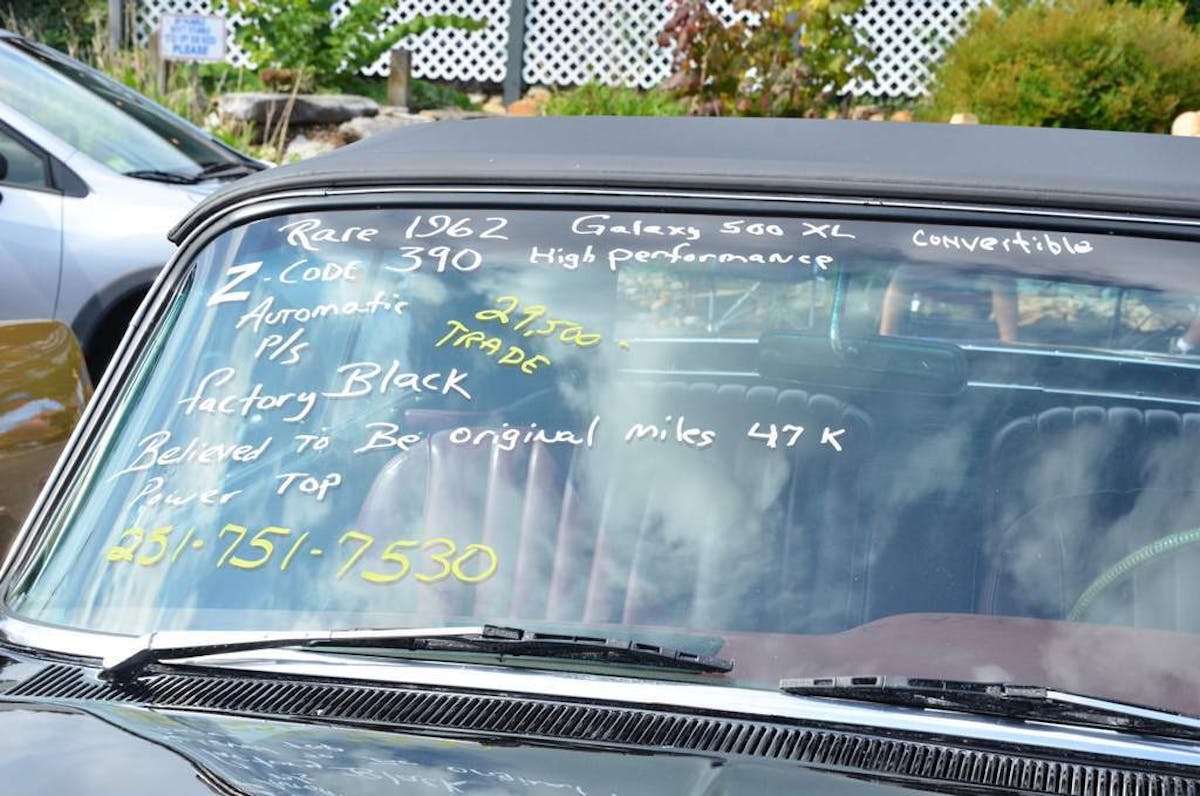 Rare 1962 Galaxy 500 XL Convertible
Z-CODE 390 High performance
Automatic
P/S
29,500.
TRADE
factory Black
Believed To Be original miles 47K
Power Top
251-751-7530
PLEASE